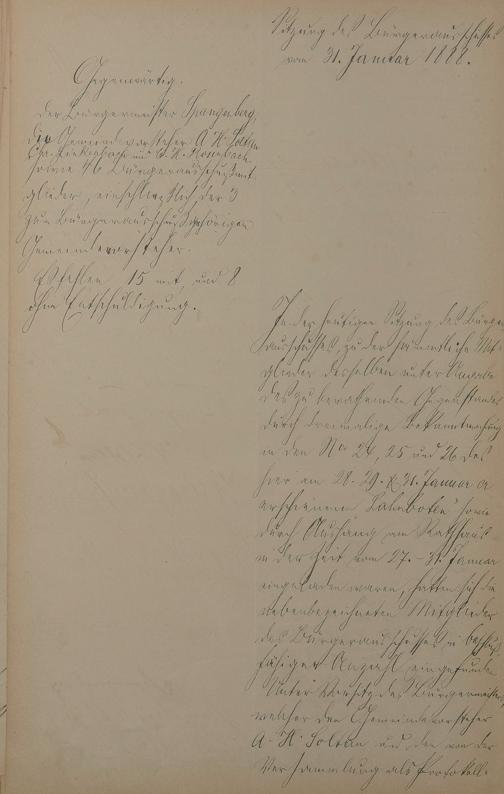 Sitzung des Bürgerausschusses
vom 31. Januar 1888.
Gegenwärtig.
Der Bürgermeister Spangenberg,
die Gemeindevorsteher A. H. Soltan
und
sowie 46 Bürgerausschußmit-
glieder, einschließlich der 3
zum Bürgerausschuß gehörigen
Gemeindevorsteher.
Es fehlen 15 mit, und 8
ohne Entschuldigung.
In der heutigen Sitzung des Bürger-
ausschusses, zu der sämmtliche Mit-
glieder desselben unter Angabe
des zu berathenden Gegenstandes
durch dreimalige Bekanntmachung
in den No 24, 25 und 26 des
hier am 28. 29. & 31. Januar cr
erschienenen "Lahnboten" sowie
durch Aushang am Rathhause
in der Zeit vom 27.-31. Januar
eingeladen waren, hatten sich die
nebenbezeichneten Mitglieder
des Bürgerausschusses in beschluß-
fähiger Anzahl eingefunden.
Unter Vorsitz des Bürgermeisters,
welcher den Gemeindevorsteher
A. H. Soltan und den von der
Versammlung als Protokoll-